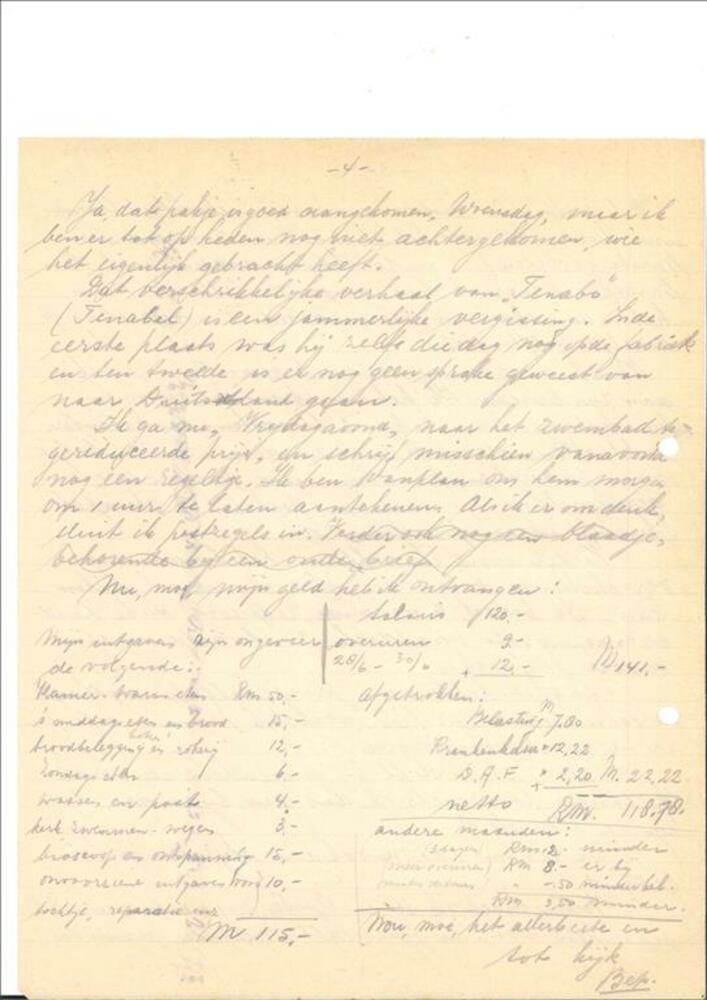 -4-
Ja, dat pakje is goed aangekomen, Woensdag, maar ik
ben er tot op heden nog niet achtergekomen, wie
het eigenlijk gebracht heeft.
Dat verschrikkelijke verhaal van "Tenabo"
(Tenabel) is een jammerlijke vergissing. In de
eerste plaats was hij zelfs die dag nog op de fabriek
en ten tweede is er nog geen sprake geweest van
naar Duitschland gaan.
Ik ga nu, Vrijdagavond, naar het zwembad te-
gereduceerde prijs, en schrijf misschien vanavond
nog een regeltje. Ik ben van plan om hem morgen
om 1 uur te laten aantekenen. Als ik er om denk,
sluit ik postzegels in. Verder ook nog een blaadje,
behorende bij een ander brief
Nu, moe, mijn geld heb ik ontvangen:
salaris 120.-
Mijn uitgaven zijn ongeveer
de volgende:
overuren 9.-
28/6 - 30/6 + 12.- M 141,-
Kamer - warm eten Rm 50,-
afgetrokken:
's middags eten en brood 15,-
Belasting M 7.80
broodbelegging en 12,-
Krankenkasse " 12,22
Zondags eten 6.-
D.A.F. " 2,20 M. 22,22
wassen en post 4.-
netto RM. 118.78.
kerk zwemmen - wegen 3.-
andere maanden:
bioscoop en ontspanning 15,-
(3 dagen) Rm 12.- minder
(meer overuren) RM 8.- er bij
onvoorziene uitgaven voor 10,-
-.50 minder bel.
tochtje, reparatie enz
Rm 3,50 minder.
M 115,-
Nou, moe, het allerbeste en
tot kijk
Bep.